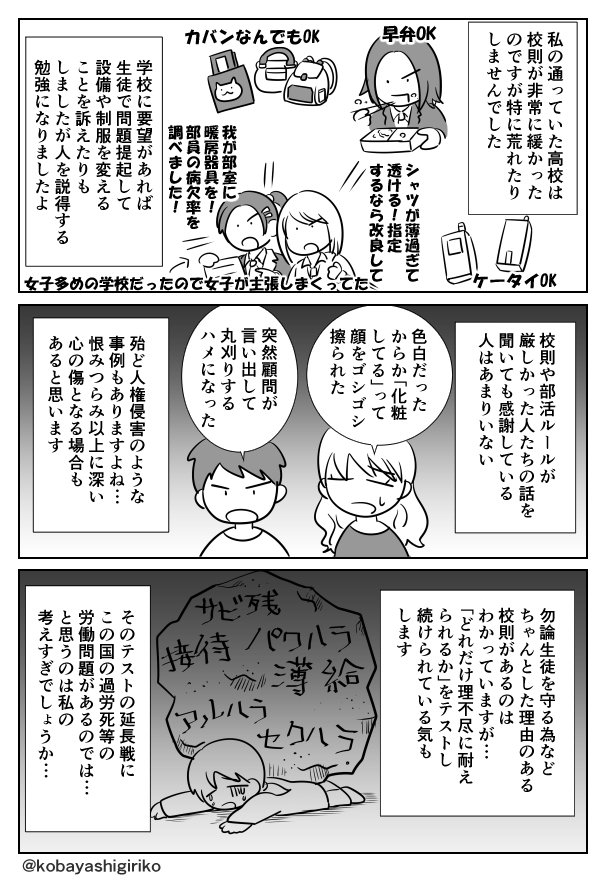 私の通っていた高校は
校則が非常に緩かった
のですが特に荒れたり
しませんでした
早弁OK
カバンなんでもOK
シャツが薄過ぎて
透ける!指定
するなら改良して
ケータイOK
我が部室に
暖房器具を!
部員の病欠率を
調べました!
女子多めの学校だったので女子が主張しまくってた
学校に要望があれば
生徒で問題提起して
設備や制服を変える
ことを訴えたりも
しましたが人を説得する
勉強になりましたよ
校則や部活ルールが
厳しかった人たちの話を
聞いても感謝している
人はあまりいない
色白だった
からか「化粧
してる」って
顔をゴシゴシ
擦られた
突然顧問が
言い出して
丸刈りする
ハメになった
殆ど人権侵害のような
事例もありますよね…
恨みつらみ以上に深い
心の傷となる場合も
あると思います
勿論生徒を守る為など
ちゃんとした理由のある
校則があるのは
わかっていますが…
「どれだけ理不尽に耐え
られるか」をテストし
続けられている気も
します
サビ残
接待 パワハラ
薄給
アルハラ
セクハラ
そのテストの延長戦に
この国の過労死等の
労働問題があるのでは…
と思うのは私の
考えすぎでしょうか…
@kobayashigiriko